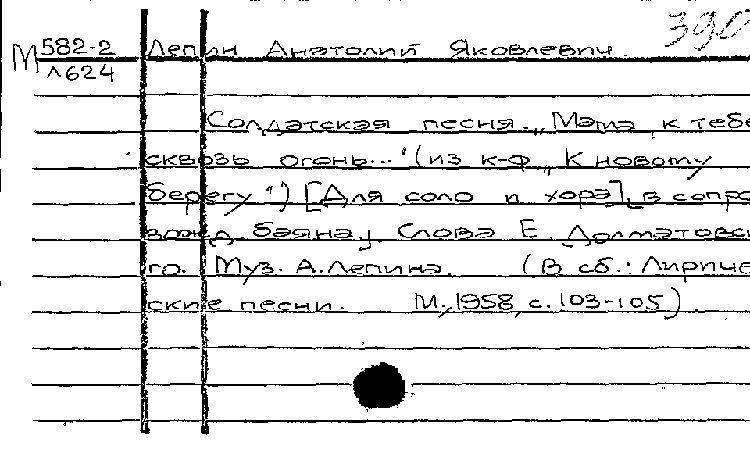 390
М 582-2 Лепин Анатолий Яковлевич.
Л624
Солдатская песня. „Мама, к тебе
сквозь огонь..." (из к-ф „К новому
берегу") [Для соло и хора], в сопро
вожд. баяна). Слова Е. Долматовск
го. Муз. А. Лепина. (В сб.: Лириче
ские песни. М., 1958, с. 103-105)